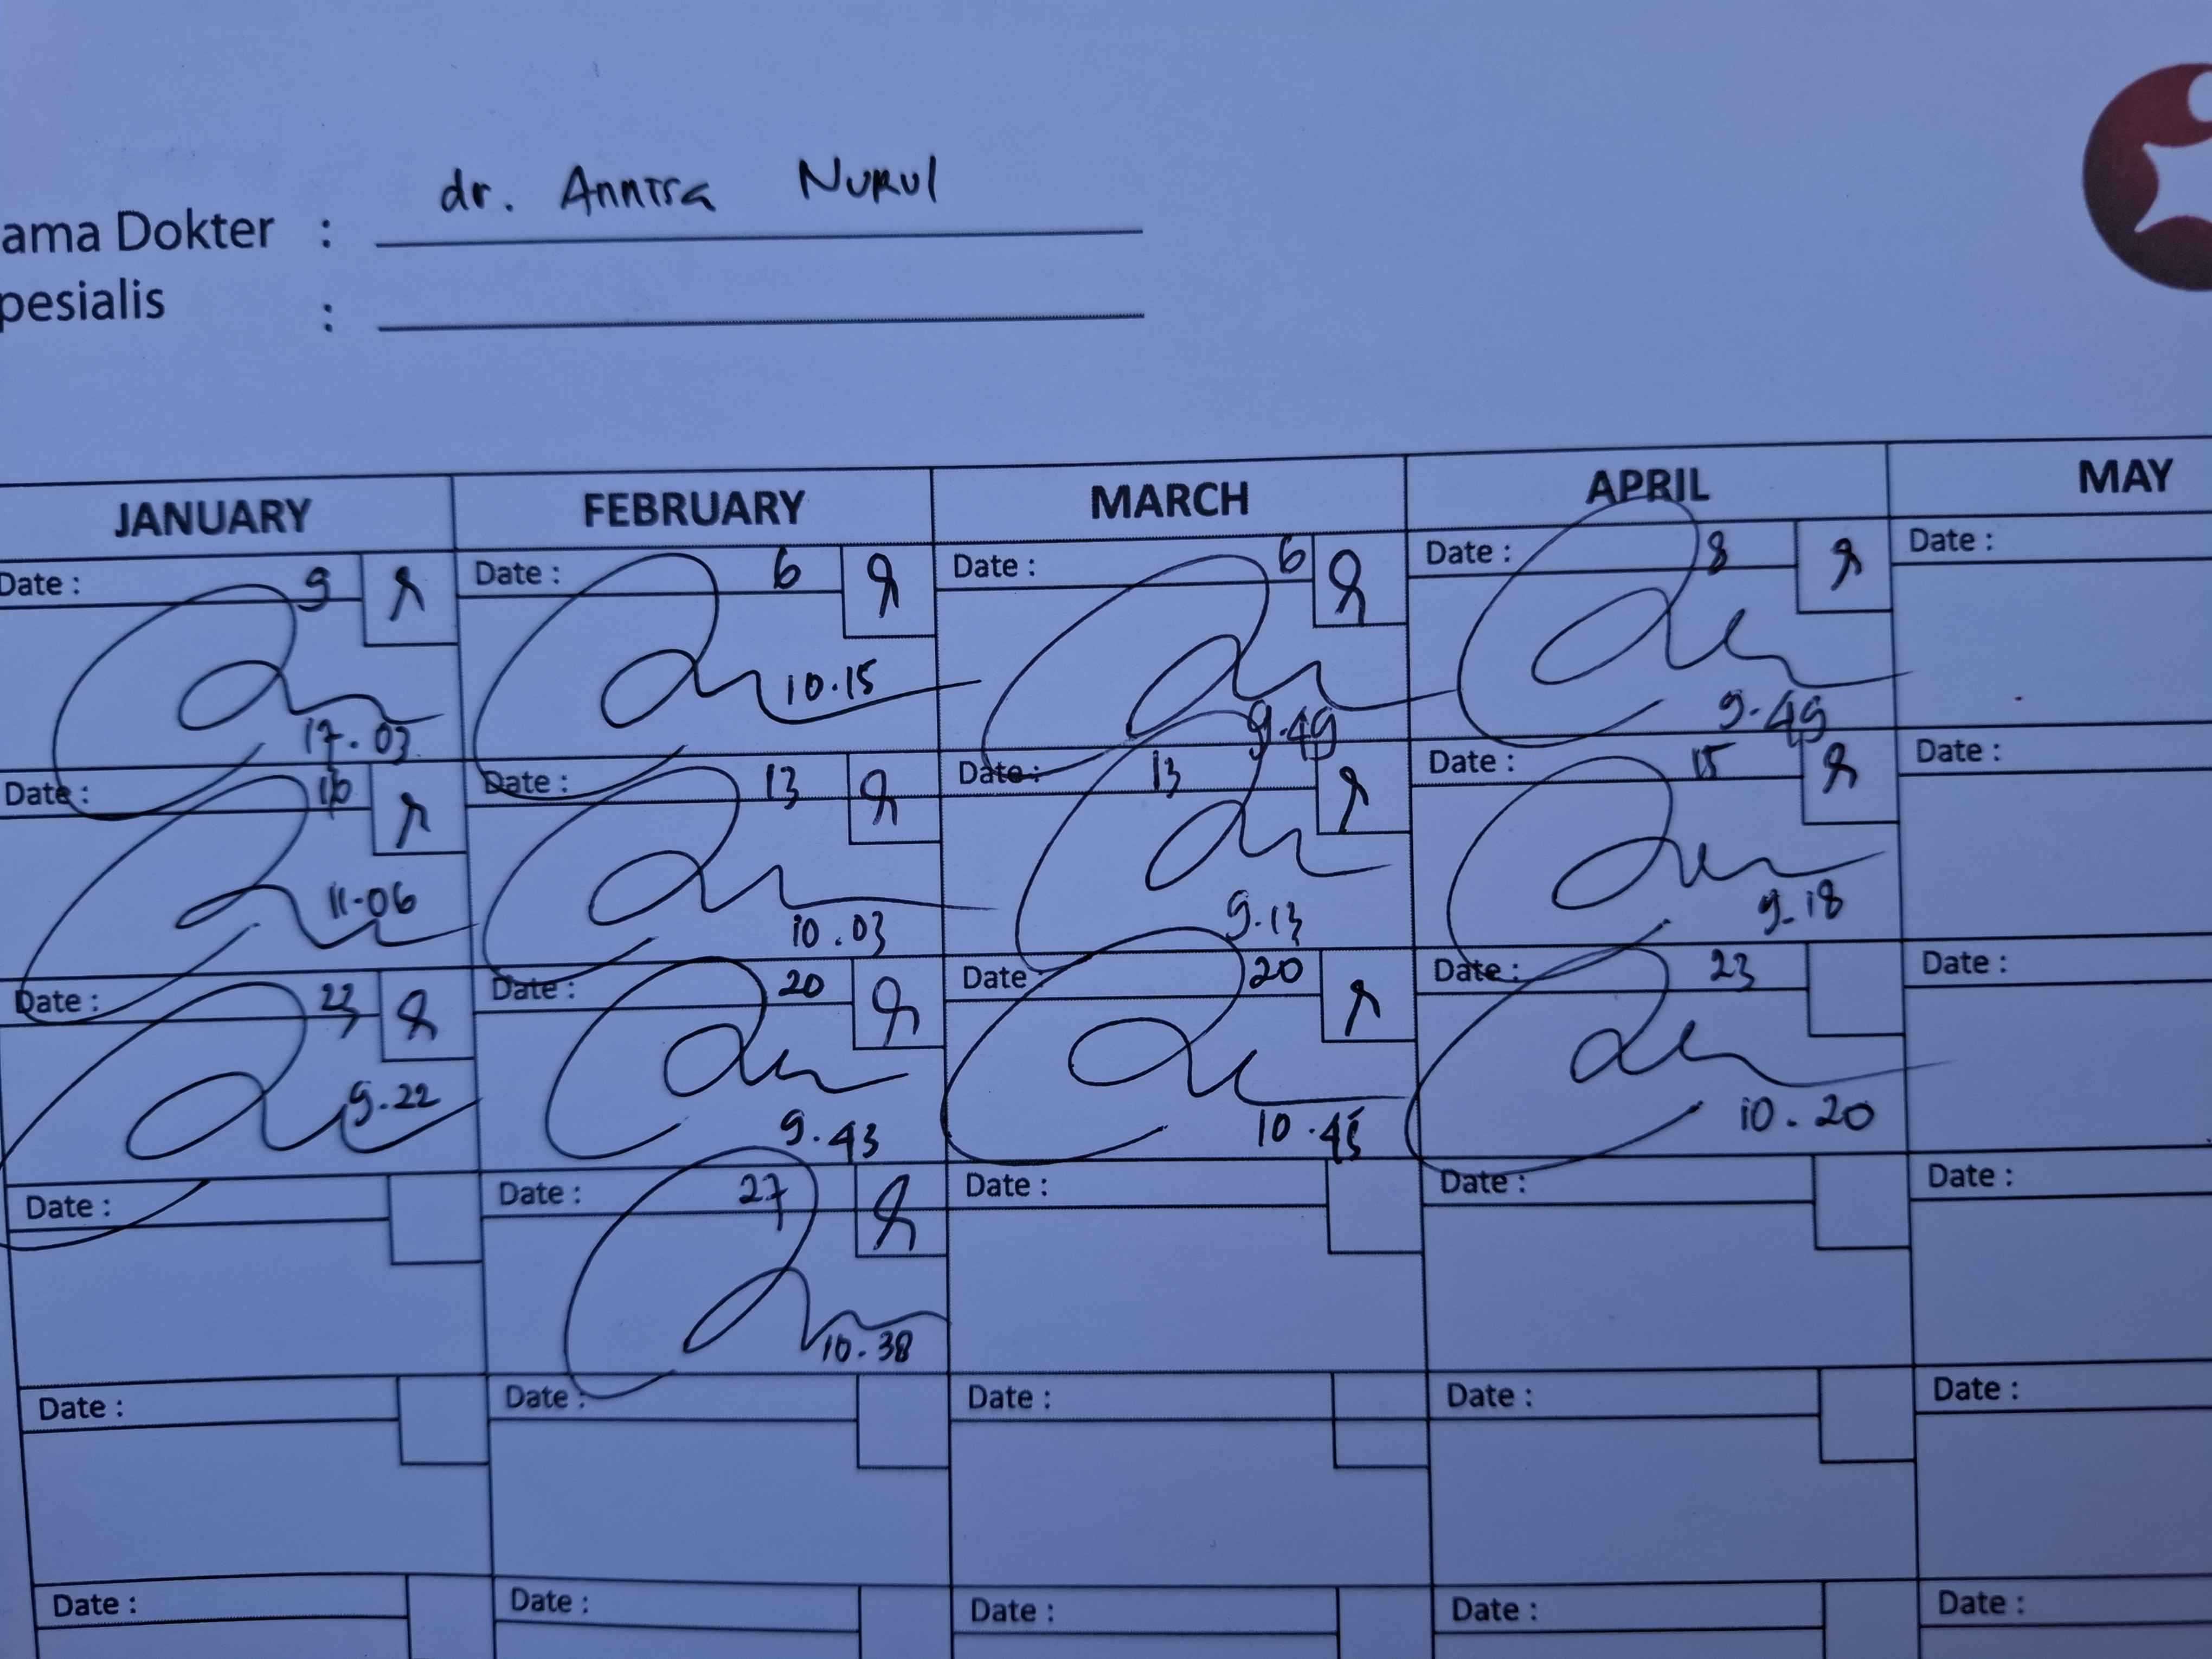 dr. Annisa Nurul
ama Dokter :
pesialis :
JANUARY FEBRUARY MARCH APRIL MAY
Date : 9 Date : 6 Date : 6 Date : 8 Date :
17.03 10.15 9.49 9.49
Date : 16 Date : 13 Date : 13 Date : 15 Date :
11.06 10.03 9.13 9.18
Date : 23 Date : 20 Date : 20 Date : 23 Date :
9.22 9.43 10.45 10.20
Date : Date : 27 Date : Date : Date :
10.38
Date : Date : Date : Date : Date :
Date : Date : Date : Date : Date :